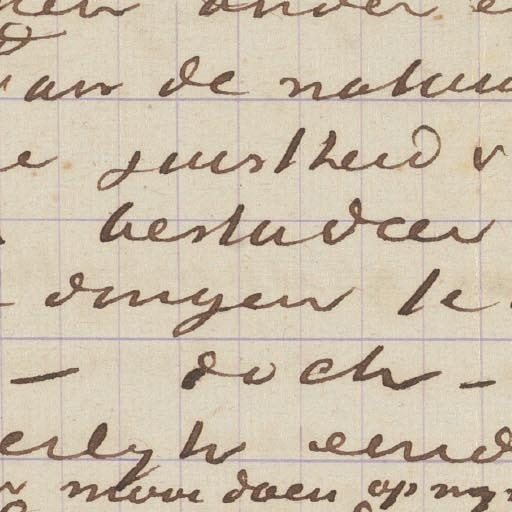 onder
van de natuur
juistheid v
bestudeer
dingen te
— doch —
erlyk eind
mooi doen op myn